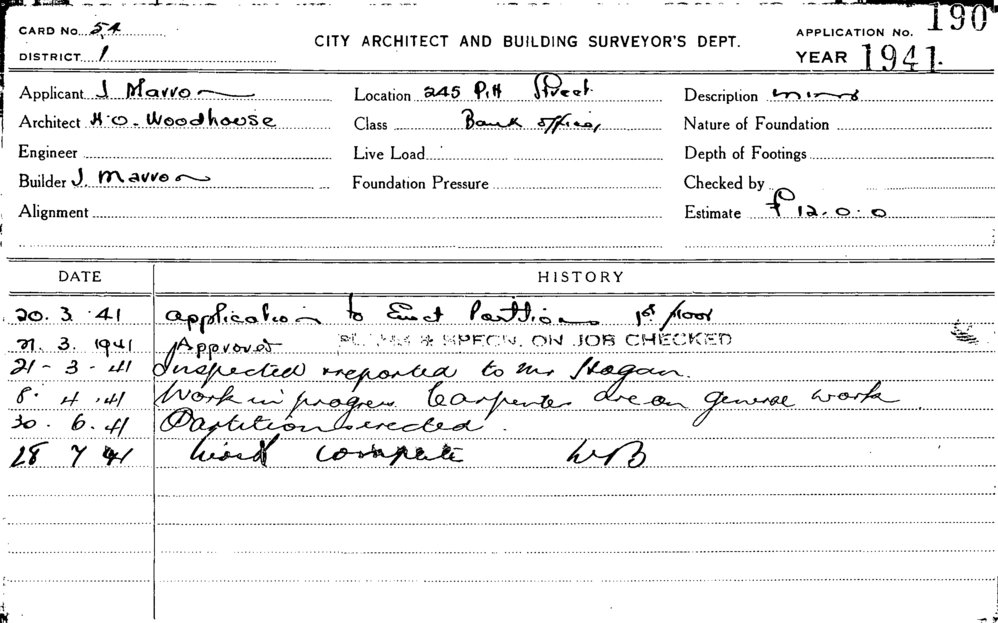 CARD No. 54
DISTRICT 1
CITY ARCHITECT AND BUILDING SURVEYOR'S DEPT.
APPLICATION No. 190
YEAR 1941.
Applicant J Marron
Location 245 Pitt Street.
Description minor
Architect H.O. Woodhouse
Class Bank offices,
Nature of Foundation
Engineer
Live Load
Depth of Footings
Builder J. Marron
Foundation Pressure
Checked by
Alignment
Estimate £12.0.0
DATE HISTORY
20.3.41 application to Erect Partitions 1st floor
21.3.1941 Approved PLANS & SPECN. ON JOB CHECKED
21-3-41 Inspected & reported to Mr Hogan.
8.4.41 Work in progress. Carpenters are on general work
30.6.41 Partitions erected.
28 7 41 Work complete WB